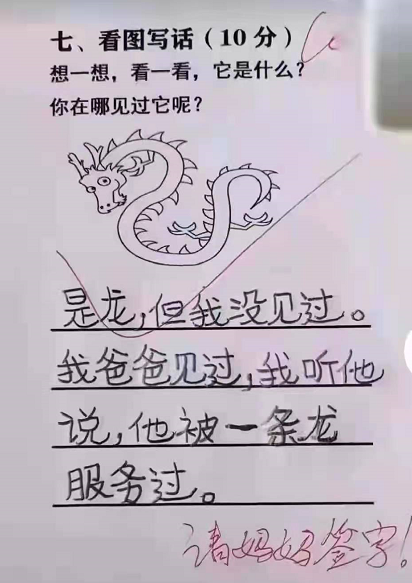 七、看图写话(10分)
想一想，看一看，它是什么？
你在哪见过它呢？
是龙,但我没见过。
我爸爸见过,我听他
说,他被一条龙
服务过。
请妈妈签字!